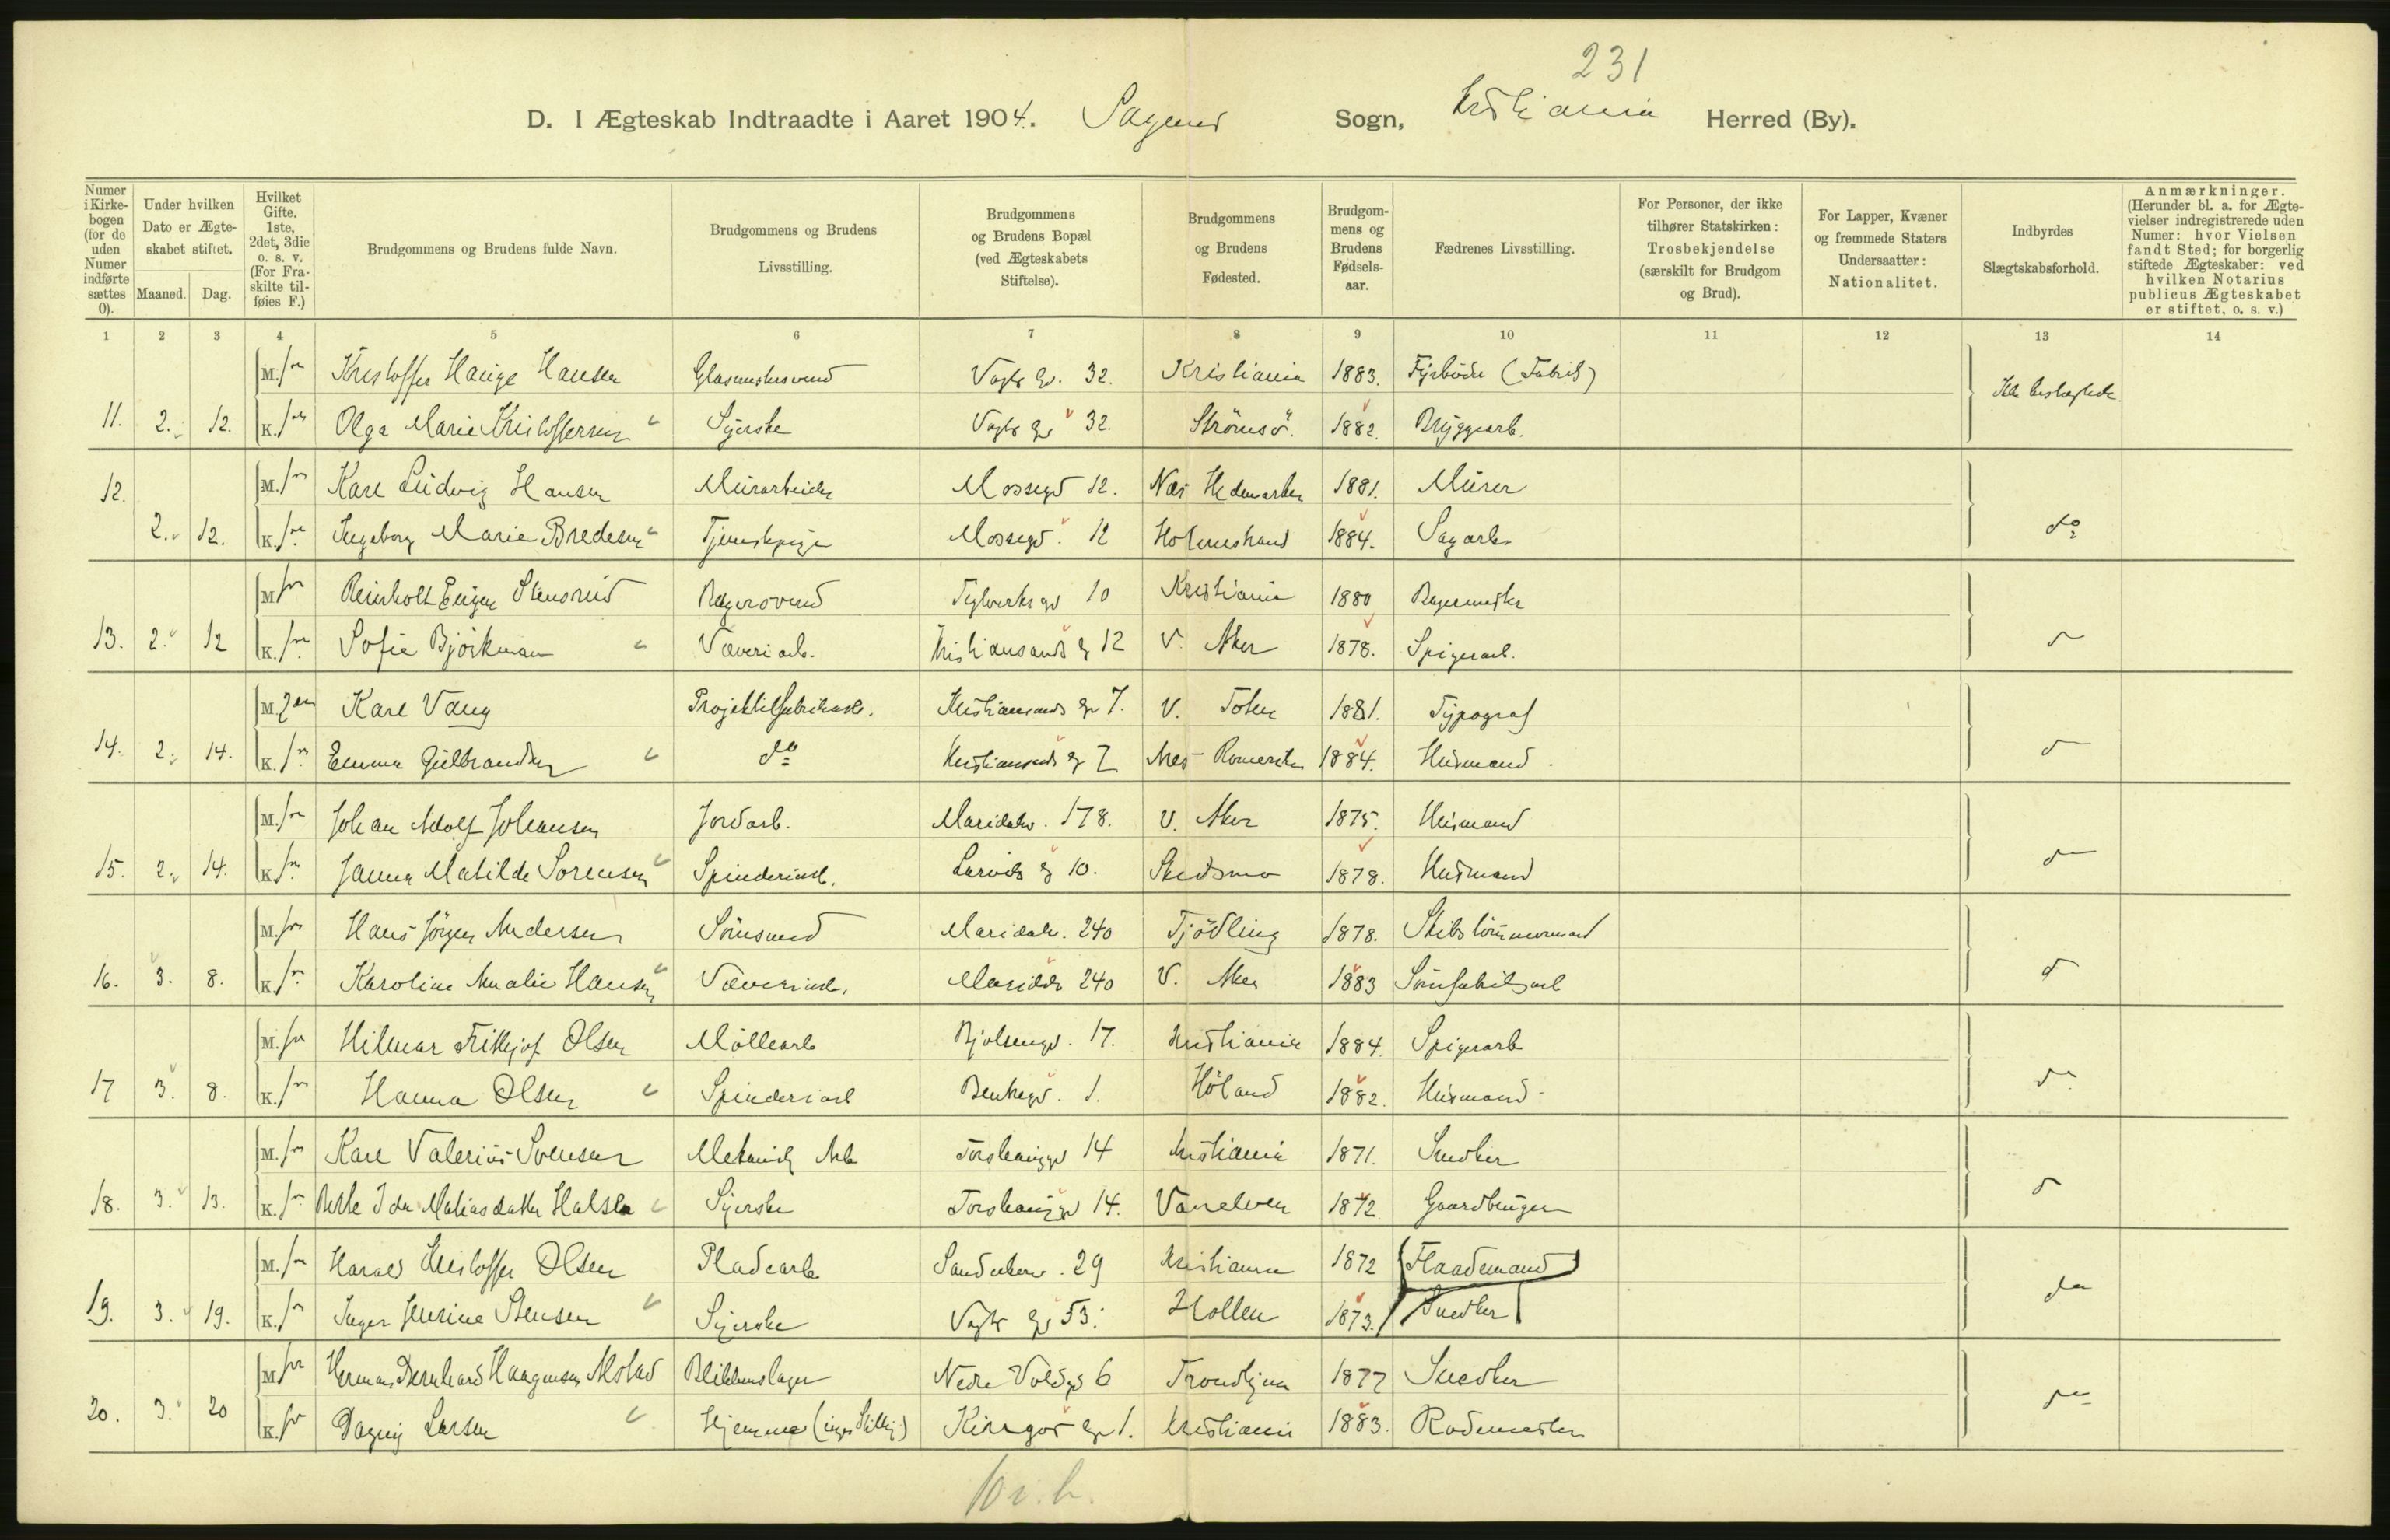 231
D. I Ægteskab Indtraadte i Aaret 1904. Sagenes Sogn, Kristiania Herred (By).
Numer i Kirke-bogen (for de uden Numer indførte sættes 0).
Under hvilken Dato er Ægte-skabet stiftet.
Maaned. Dag.
Hvilket Gifte. 1ste, 2det, 3die o. s. v. (For Fra-skilte til-føies F.)
Brudgommens og Brudens fulde Navn.
Brudgommens og Brudens Livsstilling.
Brudgommens og Brudens Bopæl (ved Ægteskabets Stiftelse).
Brudgommens og Brudens Fødested.
Brudgom-mens og Brudens Fødsels-aar.
Fædrenes Livsstilling.
For Personer, der ikke tilhører Statskirken: Trosbekjendelse (særskilt for Brudgom og Brud).
For Lapper, Kvæner og fremmede Staters Undersaatter: Nationalitet.
Indbyrdes Slægtskabsforhold.
Anmærkninger. (Herunder bl. a. for Ægte-vielser indregistrerede uden Numer: hvor Vielsen fandt Sted; for borgerlig stiftede Ægteskaber: ved hvilken Notarius publicus Ægteskabet er stiftet, o. s. v.)
1 2 3 4 5 6 7 8 9 10 11 12 13 14
M. Kristoffer Hauge Hansen Glasmestersvend Vogts gd. 32. Kristiania 1883. Fyrbøder (Fabrik) Ikke beslægtede
11. 2. 12. K. Olga Marie Kristoffersen Syerske Vogts gd 32. Strömsö. 1882. Bryggearb.
12. M. Karl Ludvig Hansen Murarbeider Mossegd 12. Nes Hedemarken 1881. Murer
2. 12. K. Ingeborg Marie Bredesen Tjenestepige Mossegd. 12 Holmestrand 1884. Sagarb. do
M. Reinholt Eugen Stensrud Bagersvend Teglverksgd 10 Kristiania 1880 Bagermester
13. 2. 12 K. Sofie Björkman Væveriarb. Kristiansands g 12 V. Aker 1878. Spigerarb.
M. Karl Vang Projektilfabrikarb. Kristiansands gd 7. V. Toten 1881. Typograf
14. 2. 14. K. Emma Gulbrandsen do Kristiansands g 7 Nes Romerike 1884. Husmand
M. Johan Adolf Johansen Jordarb. Maridalsv. 178. V. Aker 1875. Husmand
15. 2. 14. K. Janna Matilde Sorensen Spinderiarb. Larviks g 10. Skedsmo 1878. Husmand
M. Hans Jörgen Andersen Sömsmed Maridalsv. 240 Tjödling 1878. Skibstömmermand
16. 3. 8. K. Karoline Amalie Hansen Væveriarb. Maridalsv 240 V. Aker 1883 Sömfabrikarb
M. Hilmar Frithjof Olsen Möllearb Bjølsengd. 17. Kristiania 1884. Spigerarb
17 3. 8. K. Hanna Olsen Spinderiarb Bentsegd. 1. Höland 1882. Husmand
M. Karl Valerius Svensen Mekanisk Arb Torshauggd 14 Kristiania 1871. Snedker
18. 3. 13. K. Berthe Ida Matiasdatter Halsen Syerske Torshauggd 14. Vanelven 1872 Gaardbruger
M. Harald Kristoffer Olsen Pladearb Sandakerv. 29 Kristiania 1872 Flaademand
19. 3. 19. K. Inger Jensine Stensen Syerske Vogts gd 53. Hollen 1873. Snedker
M. Herman Bernhard Haagensen Mostad Blikkenslager Nedre Voldgd 6 Trondhjem 1877 Snedker
20. 3. 20 K. Dagny Larsen Hjemme (ingen Stilling) Kirkegårdsgd 1. Kristiania 1883. Rodemester